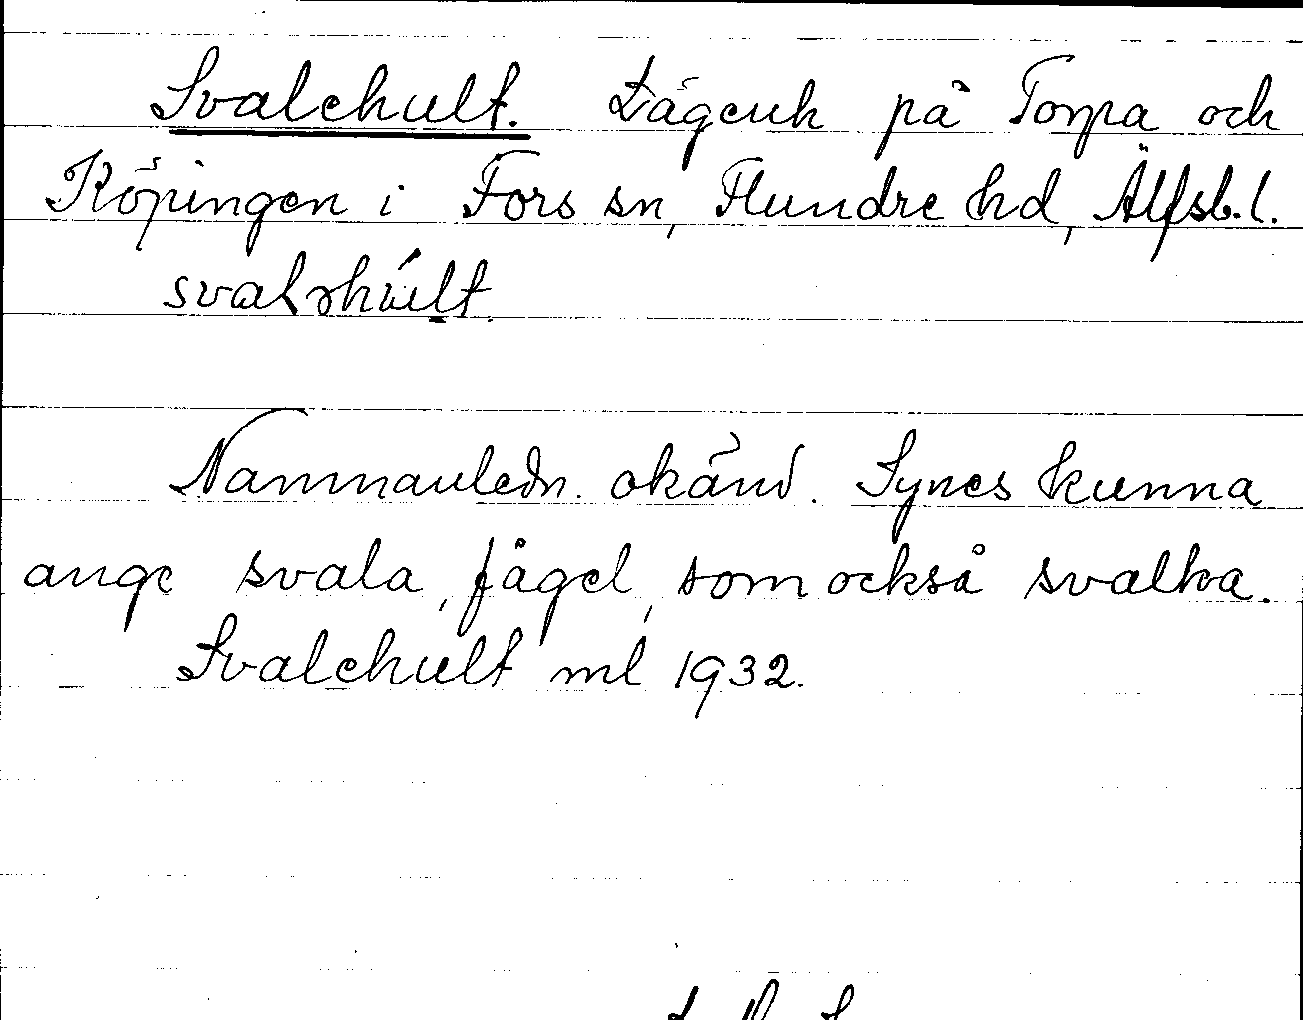 Svalehult. Lägenh på Torpa och
Köpingen i Fors sn, Flundre hd, Älfsb. l.
Namnanledn. okänd. Synes kunna
ange svala, fågel, som också svalka.
Svalehult ml 1932.